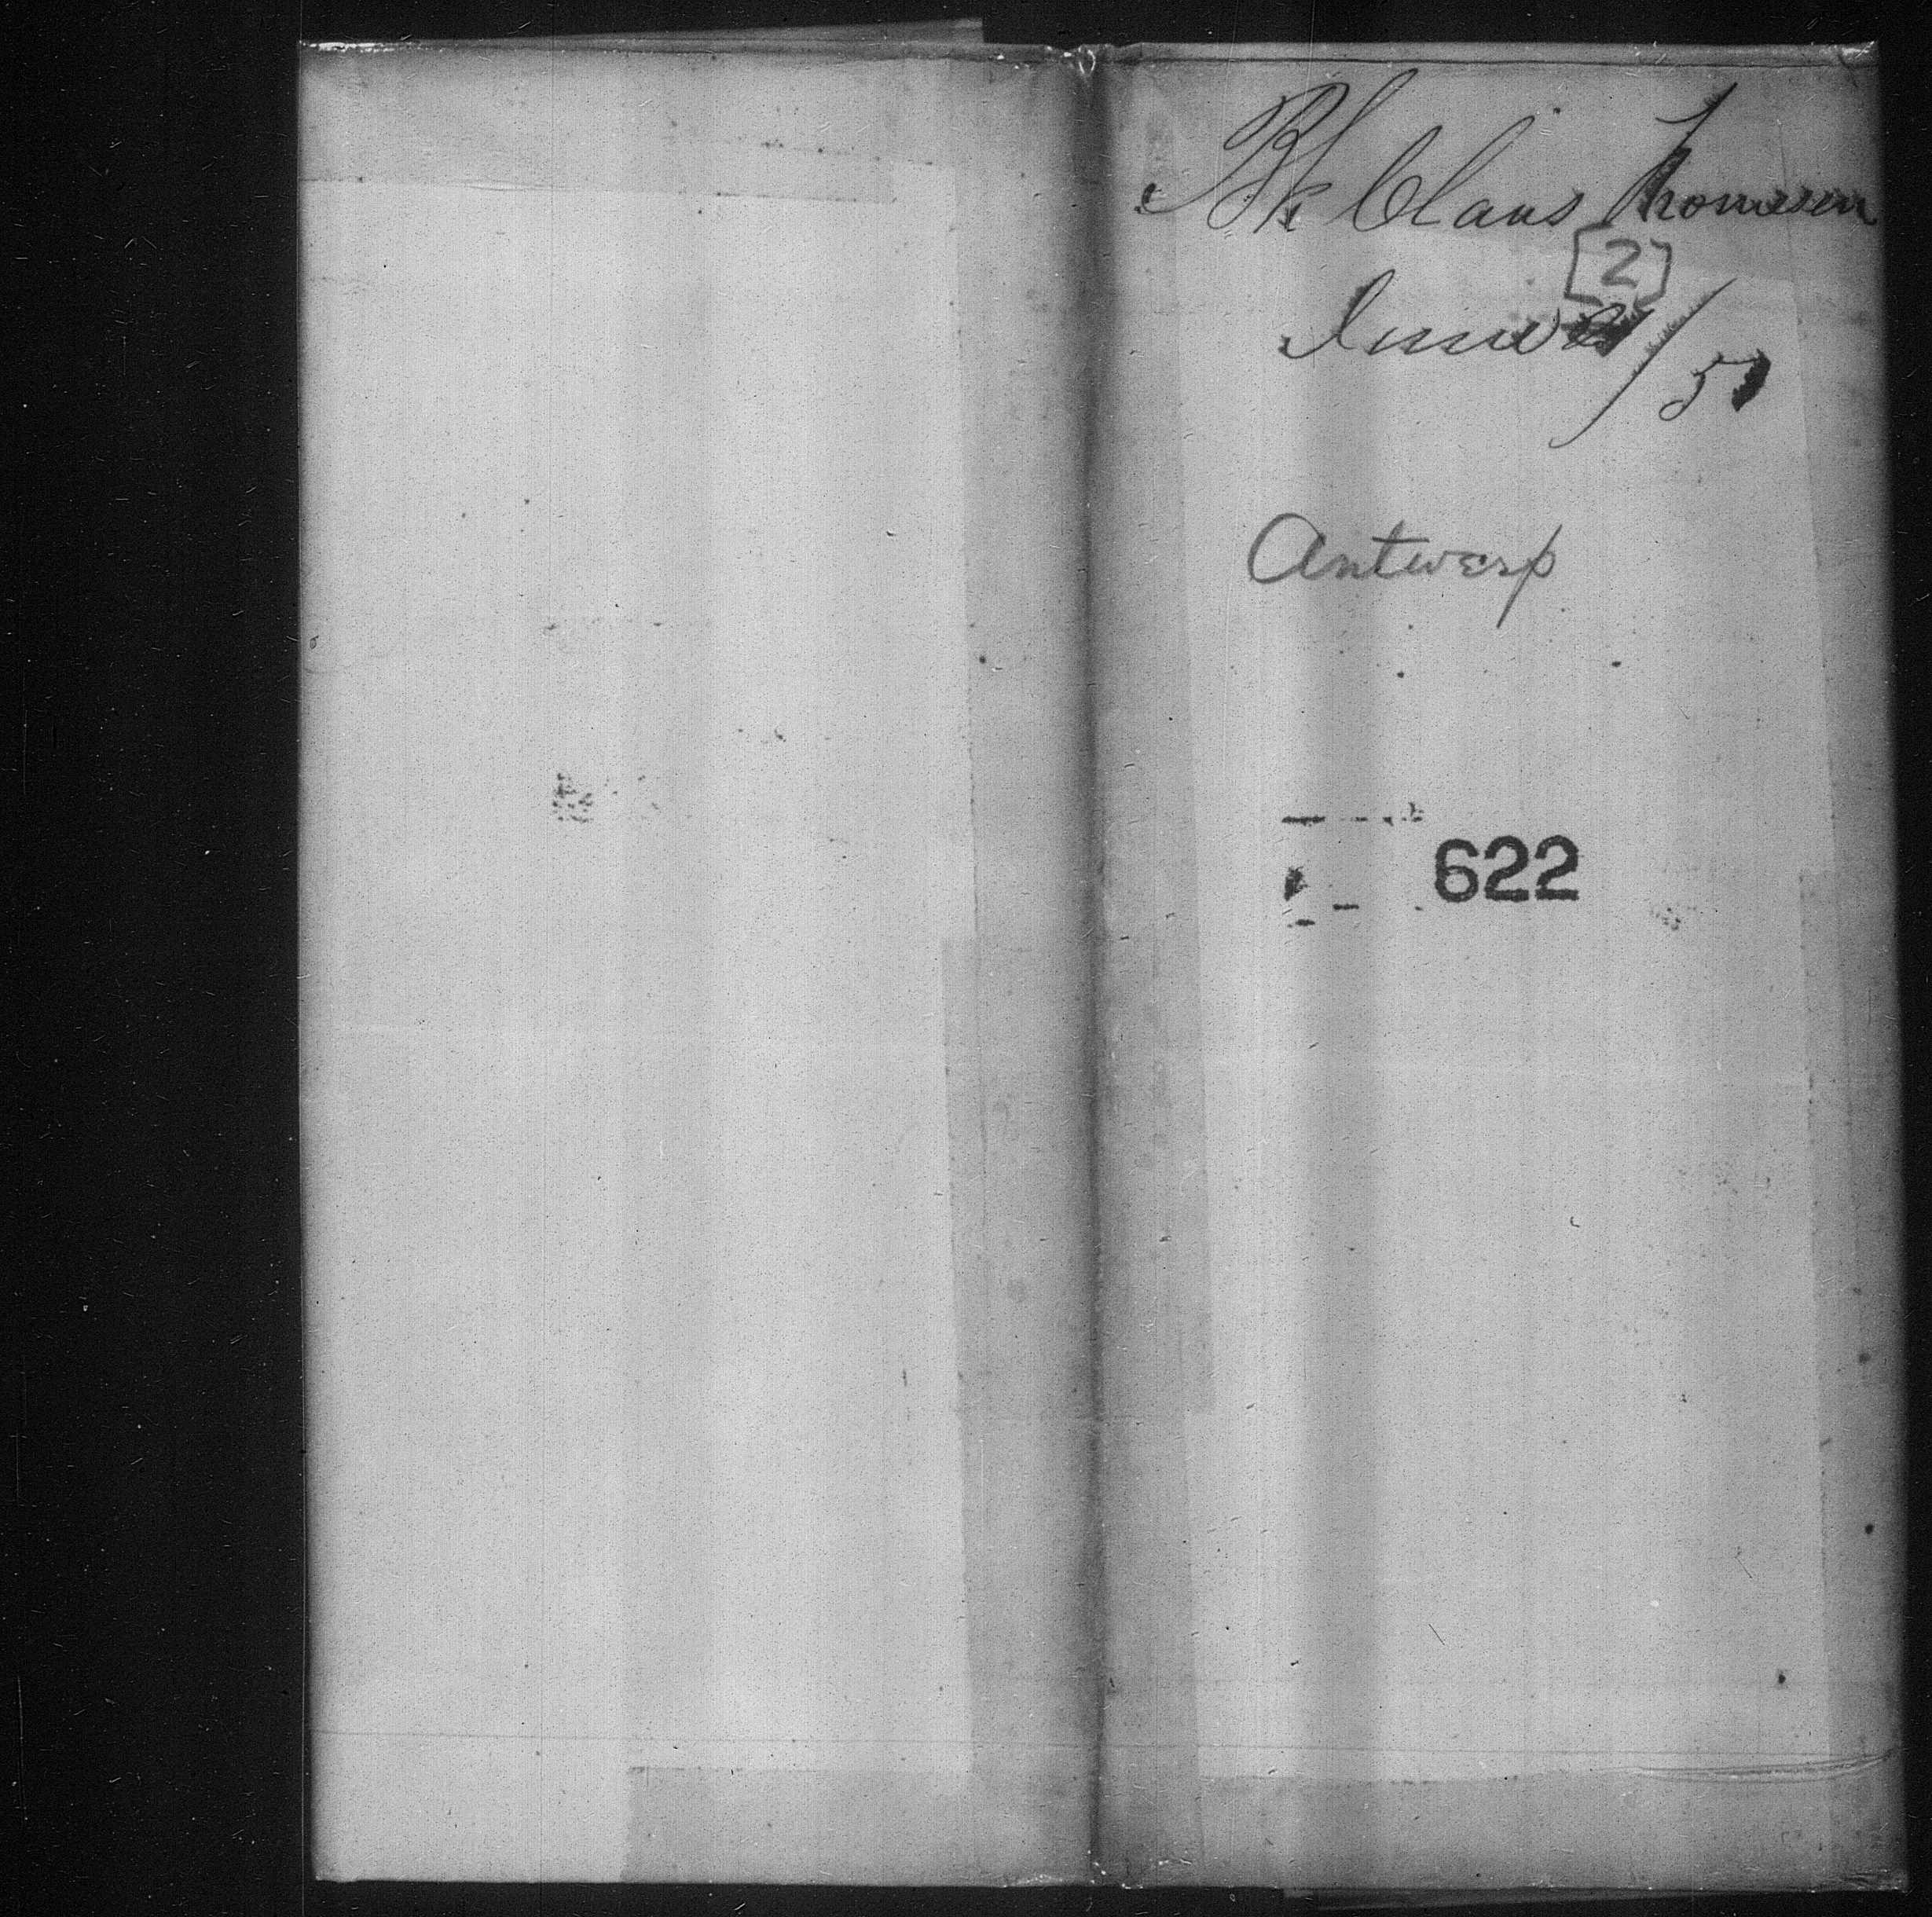 Bk Claus Thomsen
[2]
June 2/51
Antwerp
622